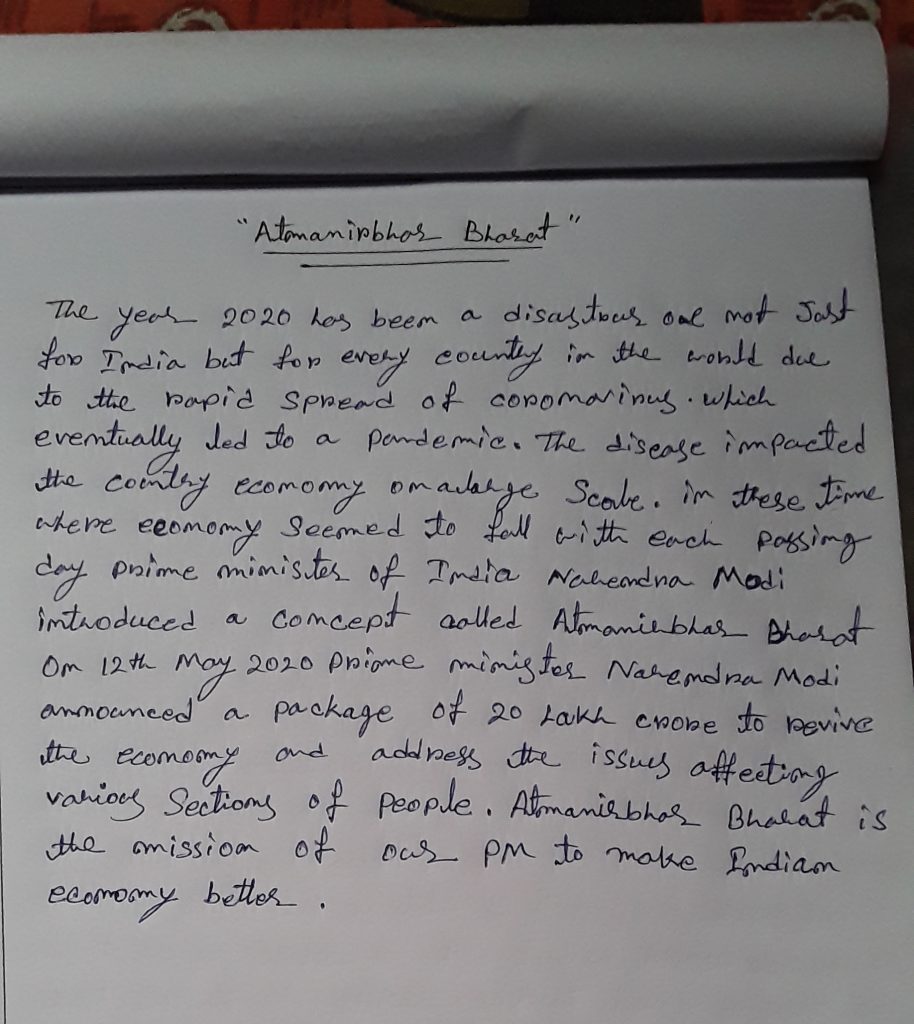 "Atmanirbhar Bharat"
The year 2020 has been a disastrous one not Just
for India but for every country in the world due
to the rapid spread of coronavirus. which
eventually led to a pandemic. The disease impacted
the country economy on a large Scale. in these time
where economy Seemed to fall with each passing
day prime minister of India Narendra Modi
introduced a concept called Atmanirbhar Bharat
On 12th May 2020 Prime minister Narendra Modi
announced a package of 20 Lakh crore to revive
the economy and address the issues affecting
various Sections of People. Atmanirbhar Bharat is
the mission of our PM to make Indian
economy better.